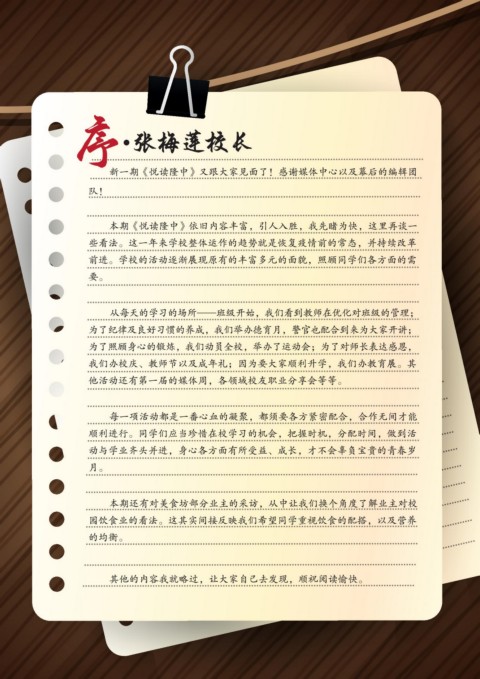 序·张梅莲校长
新一期《悦读隆中》又跟大家见面了！感谢媒体中心以及幕后的编辑团
队！
本期《悦读隆中》依旧内容丰富，引人入胜，我先睹为快，这里再谈一
些看法。这一年来学校整体运作的趋势就是恢复疫情前的常态，并持续改革
前进。学校的活动逐渐展现原有的丰富多元的面貌，照顾同学们各方面的需
要。
从每天的学习的场所——班级开始，我们看到教师在优化对班级的管理；
为了纪律及良好习惯的养成，我们举办德育月，警官也配合到来为大家开讲；
为了照顾身心的锻炼，我们动员全校，举办了运动会；为了对师长表达感恩，
我们办校庆、教师节以及成年礼；因为要大家顺利升学，我们办教育展。其
他活动还有第一届的媒体周，各领域校友职业分享会等等。
每一项活动都是一番心血的凝聚，都须要各方紧密配合，合作无间才能
顺利进行。同学们应当珍惜在校学习的机会，把握时机，分配时间，做到活
动与学业齐头并进，身心各方面有所受益、成长，才不会辜负宝贵的青春岁
月。
本期还有对美食坊部分业主的采访，从中让我们换个角度了解业主对校
园饮食业的看法。这其实间接反映我们希望同学重视饮食的配搭，以及营养
的均衡。
其他的内容我就略过，让大家自己去发现，顺祝阅读愉快。